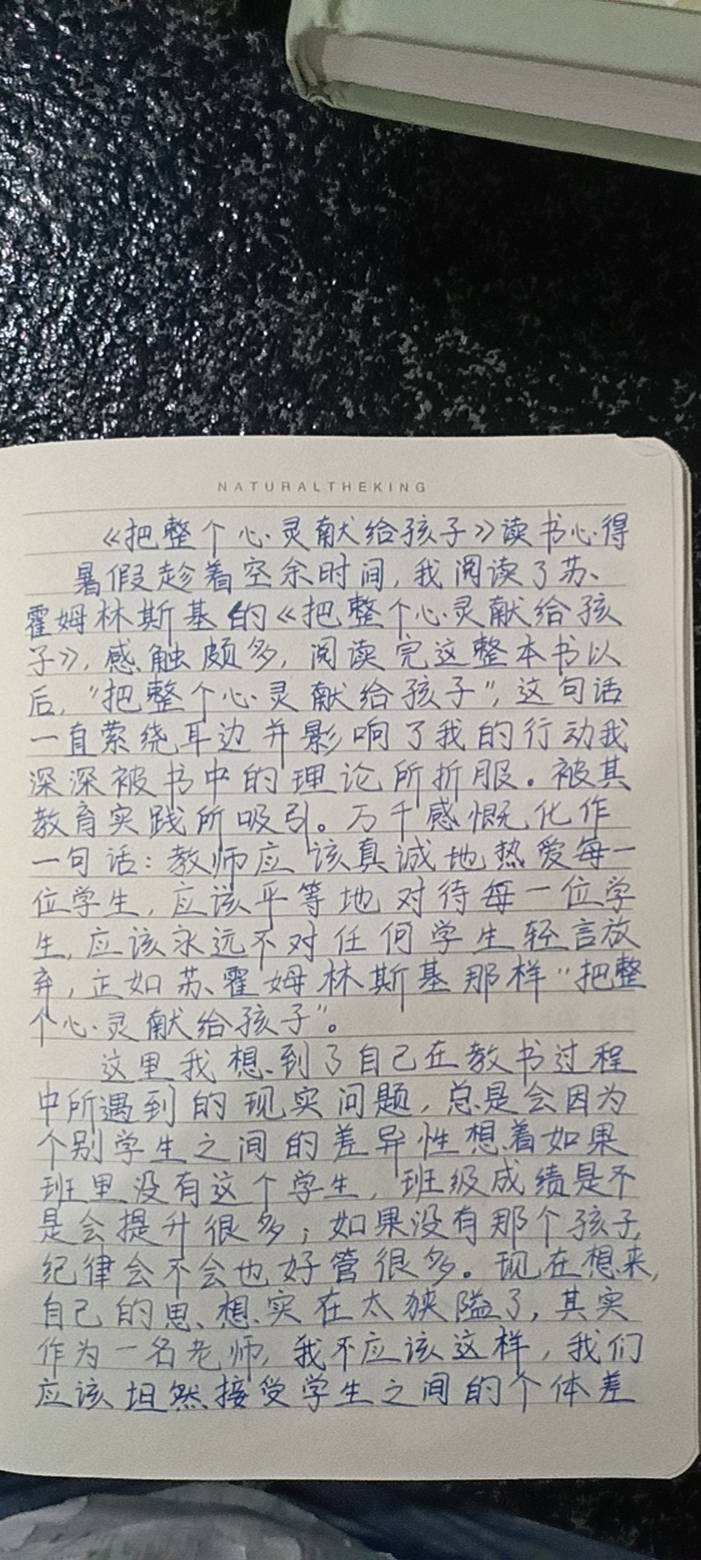 NATURALTHEKING
《把整个心灵献给孩子》读书心得
暑假趁着空余时间,我阅读了苏、
霍姆林斯基的《把整个心灵献给孩
子》,感触颇多,阅读完这整本书以
后,"把整个心灵献给孩子",这句话
一直萦绕耳边并影响了我的行动我
深深被书中的理论所折服。被其
教育实践所吸引。万千感慨化作
一句话:教师应该真诚地热爱每一
位学生,应该平等地对待每一位学
生,应该永远不对任何学生轻言放
弃,正如苏、霍姆林斯基那样"把整
个心灵献给孩子"。
这里我想到了自己在教书过程
中所遇到的现实问题,总是会因为
个别学生之间的差异性想着如果
班里没有这个学生,班级成绩是不
是会提升很多;如果没有那个孩子,
纪律会不会也好管很多。现在想来,
自己的思想实在太狭隘了,其实
作为一名老师,我不应该这样,我们
应该坦然接受学生之间的个体差